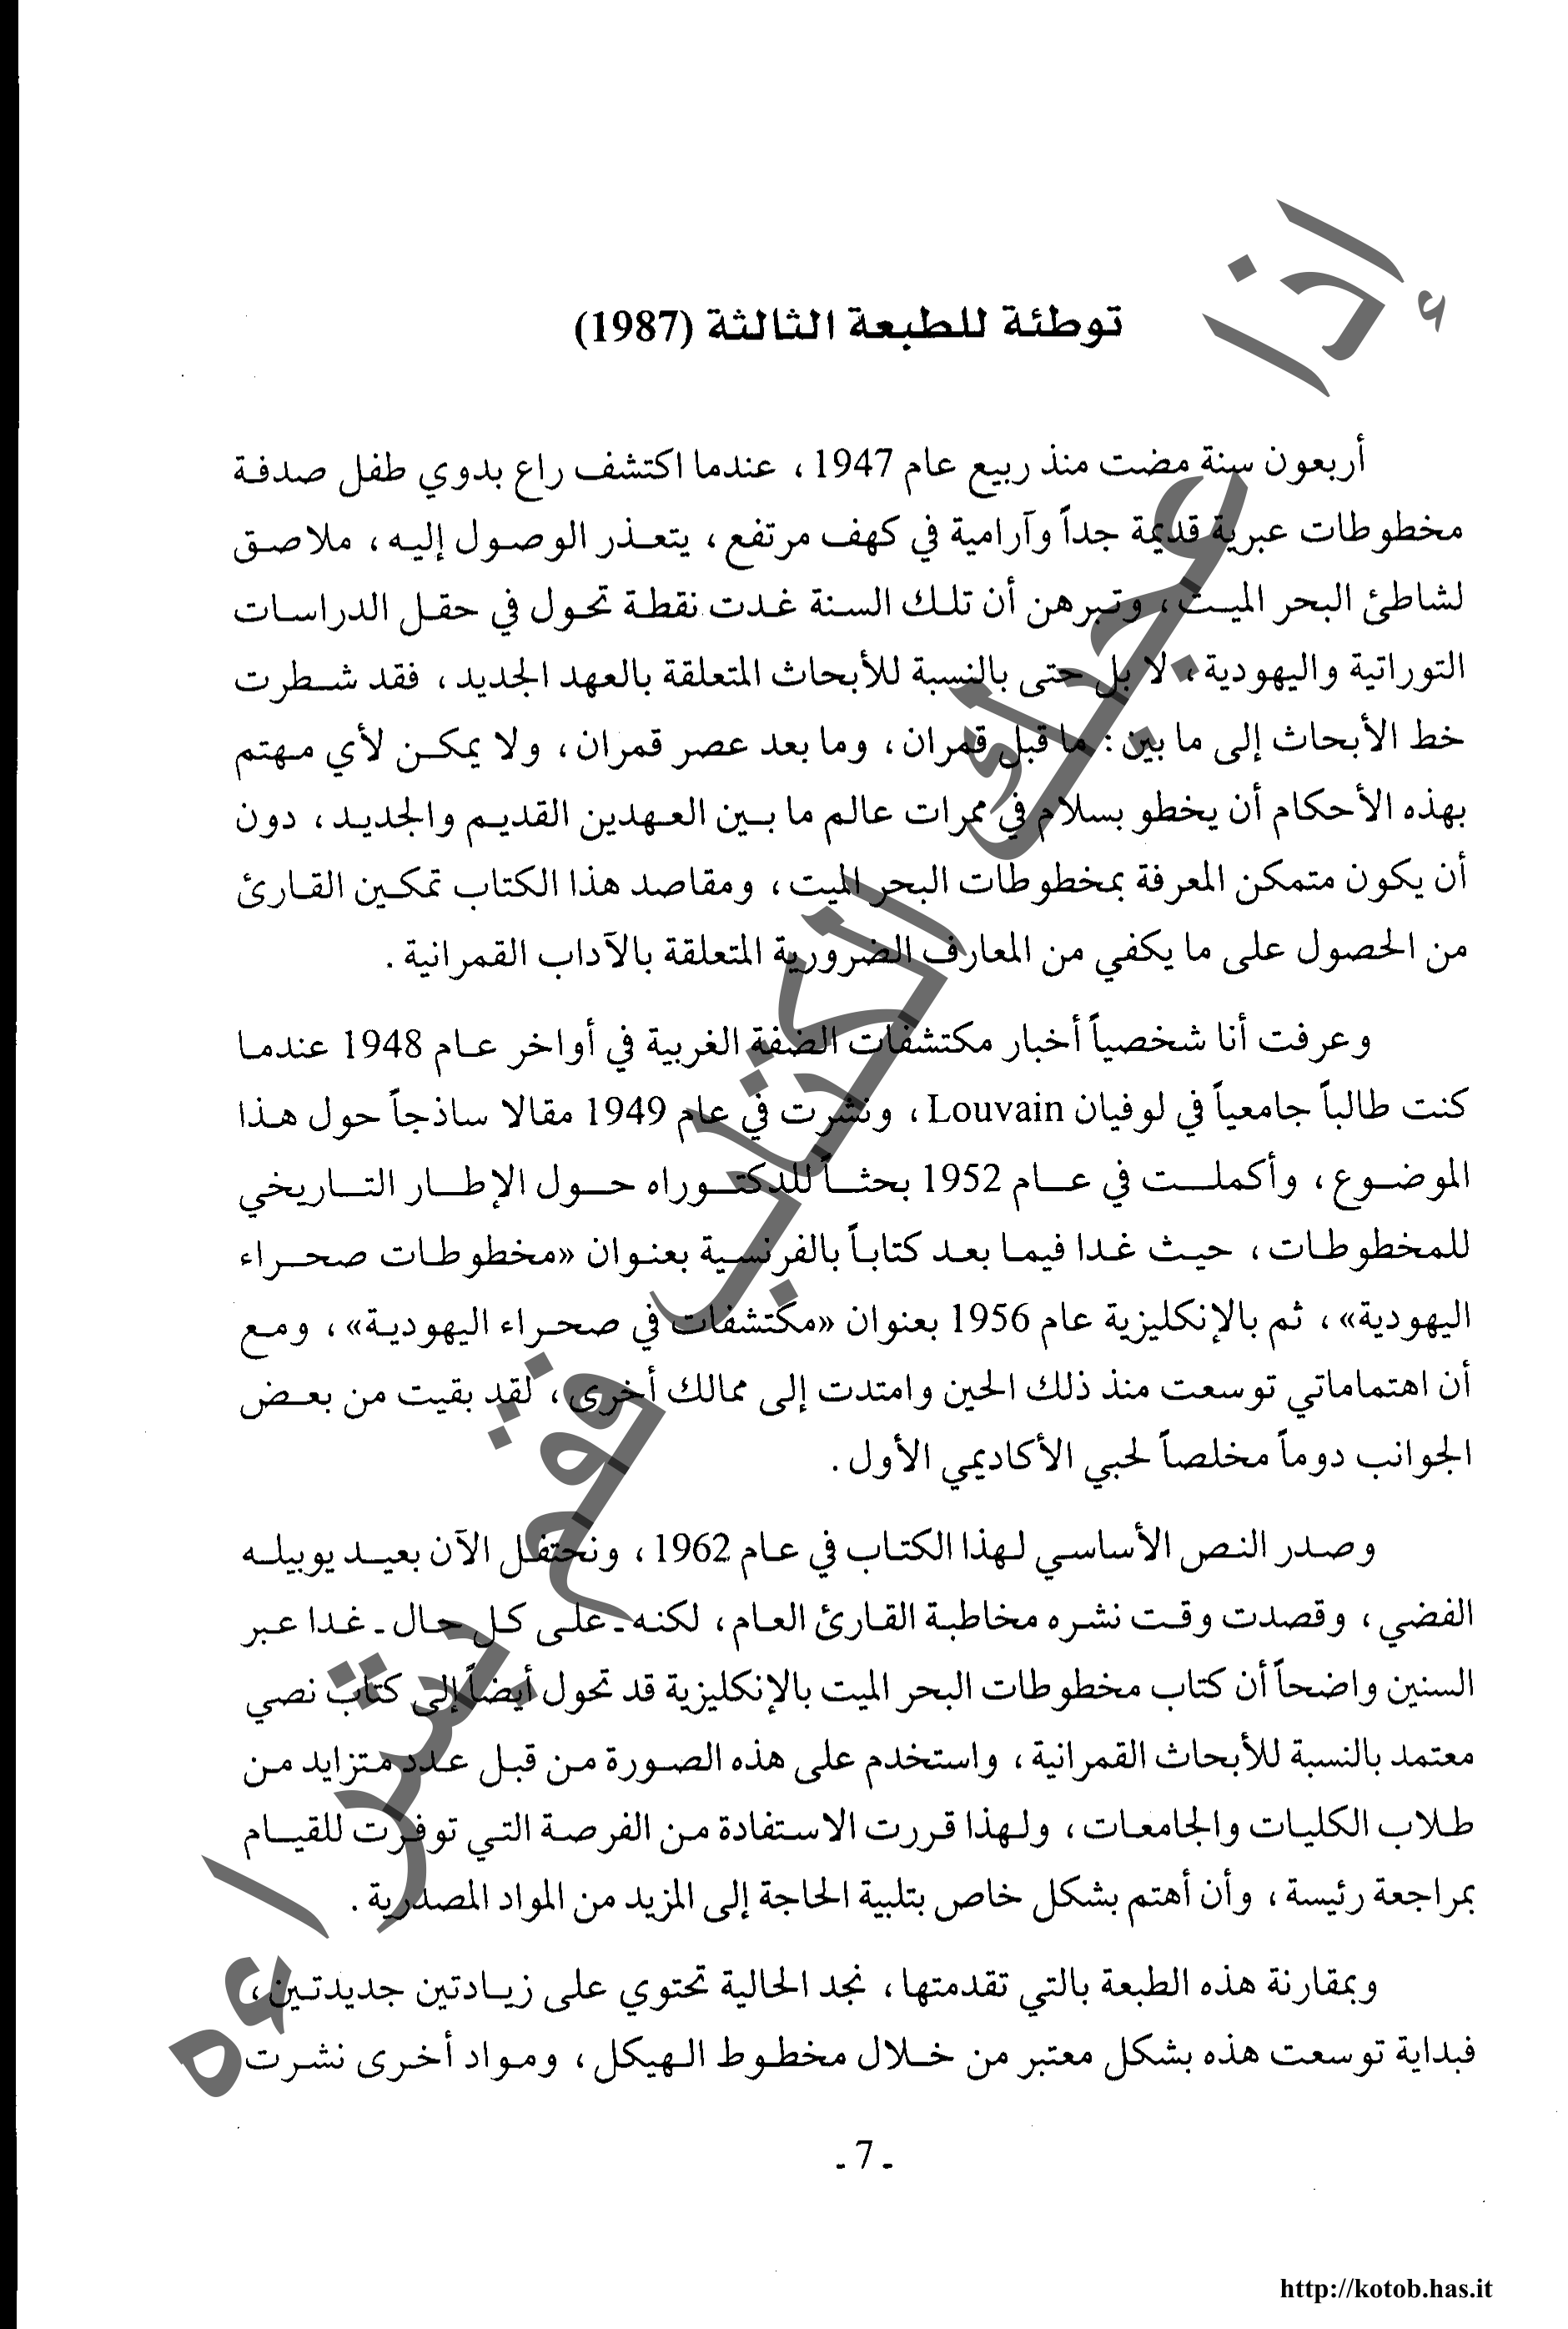 توطئة للطبعة الثالثة (1987)
أربعون سنة مضت منذ ربيع عام 1947، عندما اكتشف راع بدوي طفل صدفة
مخطوطات عبرية قديمة جداً وآرامية في كهف مرتفع، يتعذر الوصول إليه، ملاصق
لشاطئ البحر الميت، وتبرهن أن تلك السنة غدت نقطة تحول في حقل الدراسات
التوراتية واليهودية، لا بل حتى بالنسبة للأبحاث المتعلقة بالعهد الجديد، فقد شطرت
خط الأبحاث إلى ما بين: ما قبل قمران، وما بعد عصر قمران، ولا يمكن لأي مهتم
بهذه الأحكام أن يخطو بسلام في ممرات عالم ما بين العهدين القديم والجديد، دون
أن يكون متمكن المعرفة بمخطوطات البحر الميت، ومقاصد هذا الكتاب تمكين القارئ
من الحصول على ما يكفي من المعارف الضرورية المتعلقة بالآداب القمرانية.
وعرفت أنا شخصياً أخبار مكتشفات الضفة الغربية في أواخر عام 1948 عندما
كنت طالباً جامعياً في لوفيان Louvain، ونشرت في عام 1949 مقالا ساذجاً حول هذا
الموضوع، وأكملت في عام 1952 بحثاً للدكتوراه حول الإطار التاريخي
للمخطوطات، حيث غدا فيما بعد كتاباً بالفرنسية بعنوان «مخطوطات صحراء
اليهودية»، ثم بالإنكليزية عام 1956 بعنوان «مكتشفات في صحراء اليهودية»، ومع
أن اهتماماتي توسعت منذ ذلك الحين وامتدت إلى ممالك أخرى، لقد بقيت من بعض
الجوانب دوماً مخلصاً لحبي الأكاديمي الأول.
وصدر النص الأساسي لهذا الكتاب في عام 1962، ونحتفل الآن بعيد يوبيله
الفضي، وقصدت وقت نشره مخاطبة القارئ العام، لكنه ـ على كل حال ـ غدا عبر
السنين واضحاً أن كتاب مخطوطات البحر الميت بالإنكليزية قد تحول أيضاً إلى كتاب نصي
معتمد بالنسبة للأبحاث القمرانية، واستخدم على هذه الصورة من قبل عدد متزايد من
طلاب الكليات والجامعات، ولهذا قررت الاستفادة من الفرصة التي توفرت للقيام
بمراجعة رئيسة، وأن أهتم بشكل خاص بتلبية الحاجة إلى المزيد من المواد المصدرية.
وبمقارنة هذه الطبعة بالتي تقدمتها، نجد الحالية تحتوي على زيادتين جديدتين،
فبداية توسعت هذه بشكل معتبر من خلال مخطوط الهيكل، ومواد أخرى نشرت
ـ 7 ـ
http://kotob.has.it
إذا أعجبك الكتاب فقم بشراءه